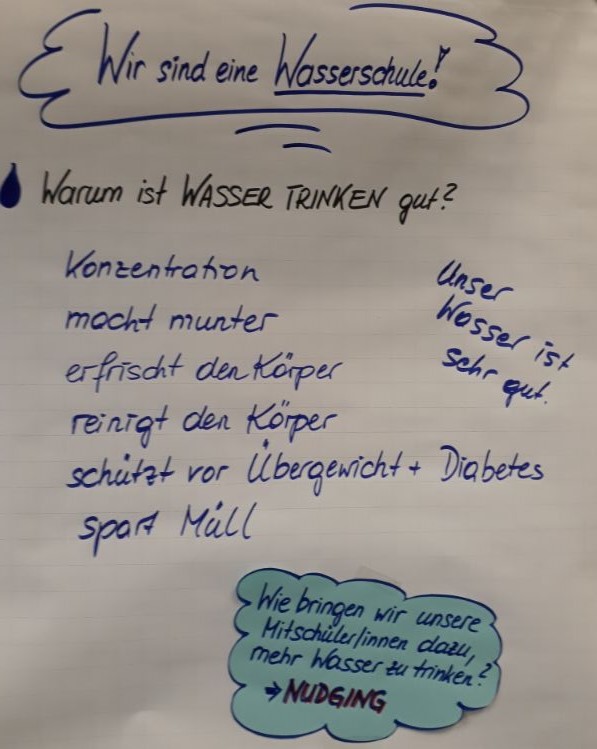 Wir sind eine Wasserschule!
Warum ist WASSER TRINKEN gut?
Konzentration
macht munter
erfrischt den Körper
reinigt den Körper
schützt vor Übergewicht + Diabetes
spart Müll
Unser
Wasser ist
sehr gut.
Wie bringen wir unsere
Mitschüler/innen dazu,
mehr Wasser zu trinken?
→ NUDGING